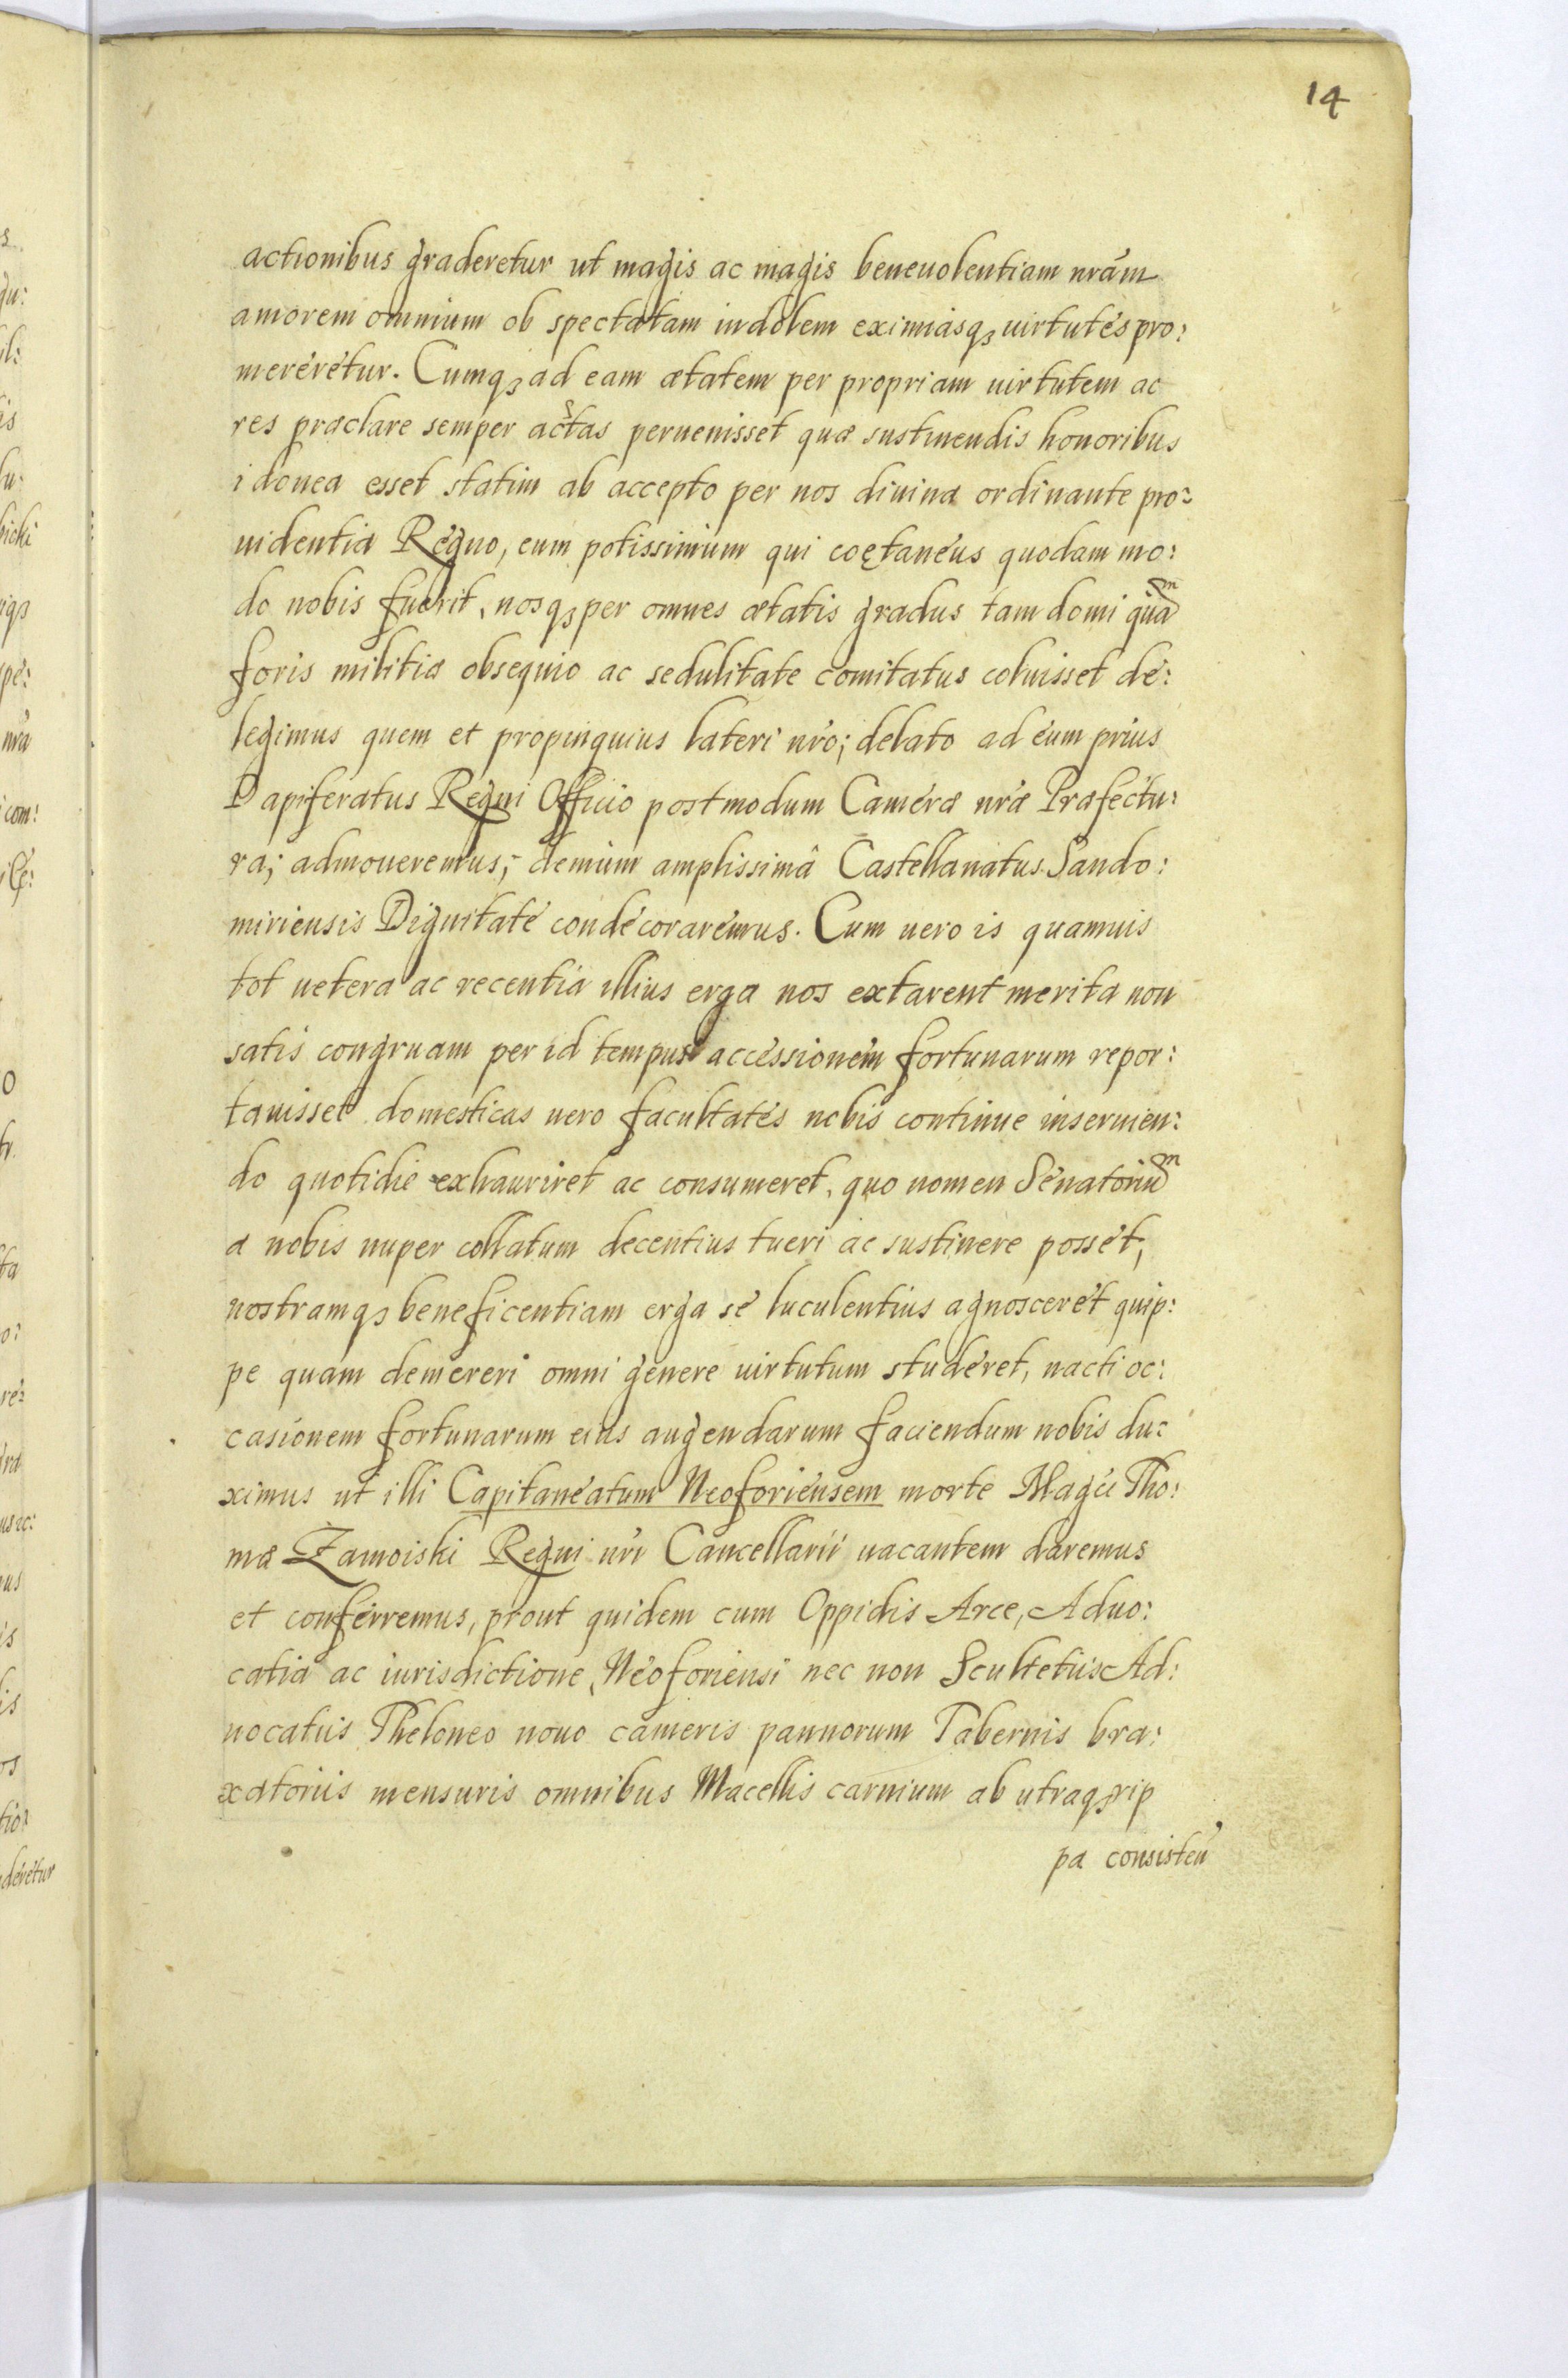 14
actionibus graderetur ut magis ac magis beneuolentiam nrám
amorem omnium ob spectatam indolem eximiasqȝ uirtutes pro:
mereretur. Cumqȝ ad eam ætatem per propriam uirtutem ac
res præclare semper actas peruenisset quæ sustinendis honoribus
idonea esset statim ab accepto per nos diuina ordinante pro:
uidentia Regno, eum potissimum qui coętaneus quodam mo:
do nobis fuerit, nosqȝ per omnes ætatis gradus tam domi quam
foris militiæ obsequio ac sedulitate comitatus coluisset de:
legimus quem et propinquius lateri nro; delato ad eum prius
Dapiferatus Regni Officio postmodum Cameræ nræ Præfectu:
ra; admoueremus; demum amplissimâ Castellanatus Sando:
miriensis Dignitate condecoraremus. Cum uero is quamuis
tot uetera ac recentia illius erga nos extarent merita non
satis congruam per id tempus accessionem fortunarum repor:
tauisset domesticas uero facultates nobis continue inseruien:
do quotidie exhauriret ac consumeret, quo nomen Senatorium
a nobis nuper collatum decentius tueri ac sustinere posset,
nostramqȝ beneficentiam erga se luculentius agnosceret quip:
pe quam demereri omni genere uirtutum studeret, nacti oc:
casionem fortunarum eius augendarum faciendum nobis du:
ximus ut illi Capitaneatum Neoforiensem morte Magci Tho:
mæ Zamoiski Regni nri Cancellarii uacantem daremus
et conferremus, prout quidem cum Oppidis Arce, Aduo:
catia ac iurisdictione Neoforiensi nec non Scultetiis Ad:
uocatiis Theloneo nouo cameris pannorum Tabernis bra:
xatoriis mensuris omnibus Macellis carnium ab utraqȝ rip
pa consisten